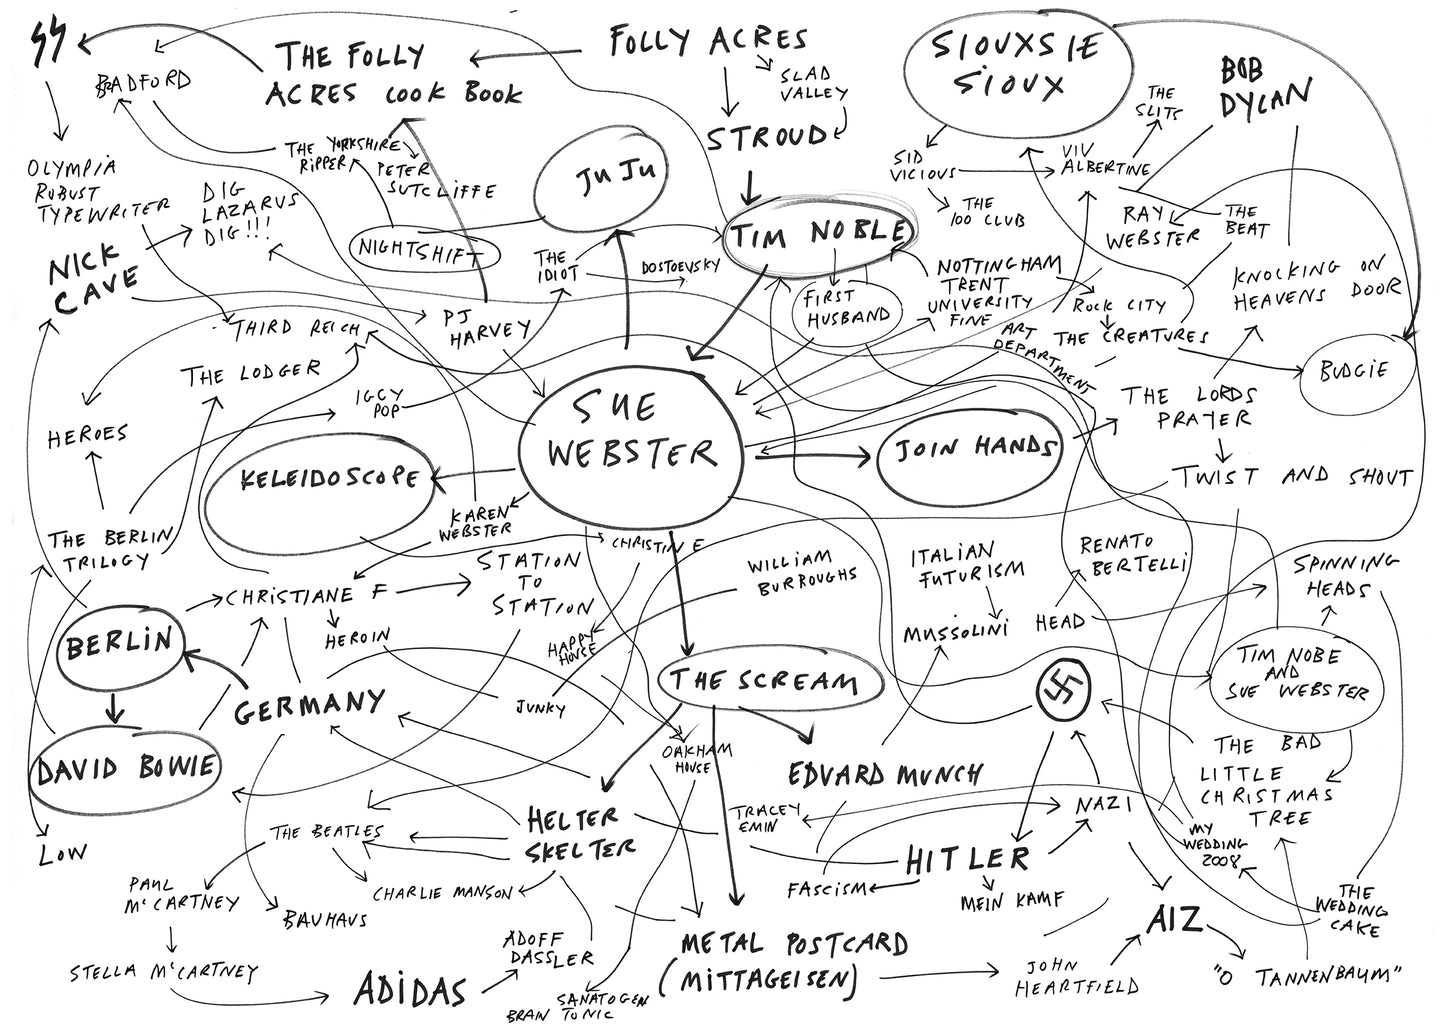 SS
BRADFORD
THE FOLLY
ACRES COOK BOOK
FOLLY ACRES
SLAD
VALLEY
STROUD
SIOUXSIE
SIOUX
BOB
DYLAN
THE
SLITS
VIV
ALBERTINE
SID
VICIOUS
THE
100 CLUB
RAY
WEBSTER
THE
BEAT
OLYMPIA
ROBUST
TYPEWRITER
DIG
LAZARUS
DIG!!!
THE YORKSHIRE
RIPPER
PETER
SUTCLIFFE
JUJU
NIGHTSHIFT
NICK
CAVE
THE
IDIOT
DOSTOEVSKY
TIM NOBLE
FIRST
HUSBAND
NOTTINGHAM
TRENT
UNIVERSITY
FINE
ART
DEPARTMENT
ROCK CITY
THE CREATURES
KNOCKING ON
HEAVENS DOOR
BUDGIE
THIRD REICH
PJ
HARVEY
THE LODGER
IGGY
POP
HEROES
SUE
WEBSTER
JOIN HANDS
THE LORDS
PRAYER
TWIST AND SHOUT
KELEIDOSCOPE
KAREN
WEBSTER
CHRISTINE
THE BERLIN
TRILOGY
CHRISTIANE F
STATION
TO
STATION
WILLIAM
BURROUGHS
ITALIAN
FUTURISM
RENATO
BERTELLI
SPINNING
HEADS
MUSSOLINI
HEAD
BERLIN
HEROIN
HAPPY
HOUSE
GERMANY
JUNKY
THE SCREAM
TIM NOBE
AND
SUE WEBSTER
DAVID BOWIE
OAKHAM
HOUSE
EDVARD MUNCH
THE BAD
LITTLE
CHRISTMAS
TREE
LOW
THE BEATLES
HELTER
SKELTER
TRACEY
EMIN
NAZI
MY
WEDDING
2008
HITLER
PAUL
McCARTNEY
CHARLIE MANSON
BAUHAUS
FASCISM
MEIN KAMF
AIZ
THE
WEDDING
CAKE
STELLA McCARTNEY
ADIDAS
ADOFF
DASSLER
SANATOGEN
BRAIN TONIC
METAL POSTCARD
(MITTAGEISEN)
JOHN
HEARTFIELD
"O TANNENBAUM"